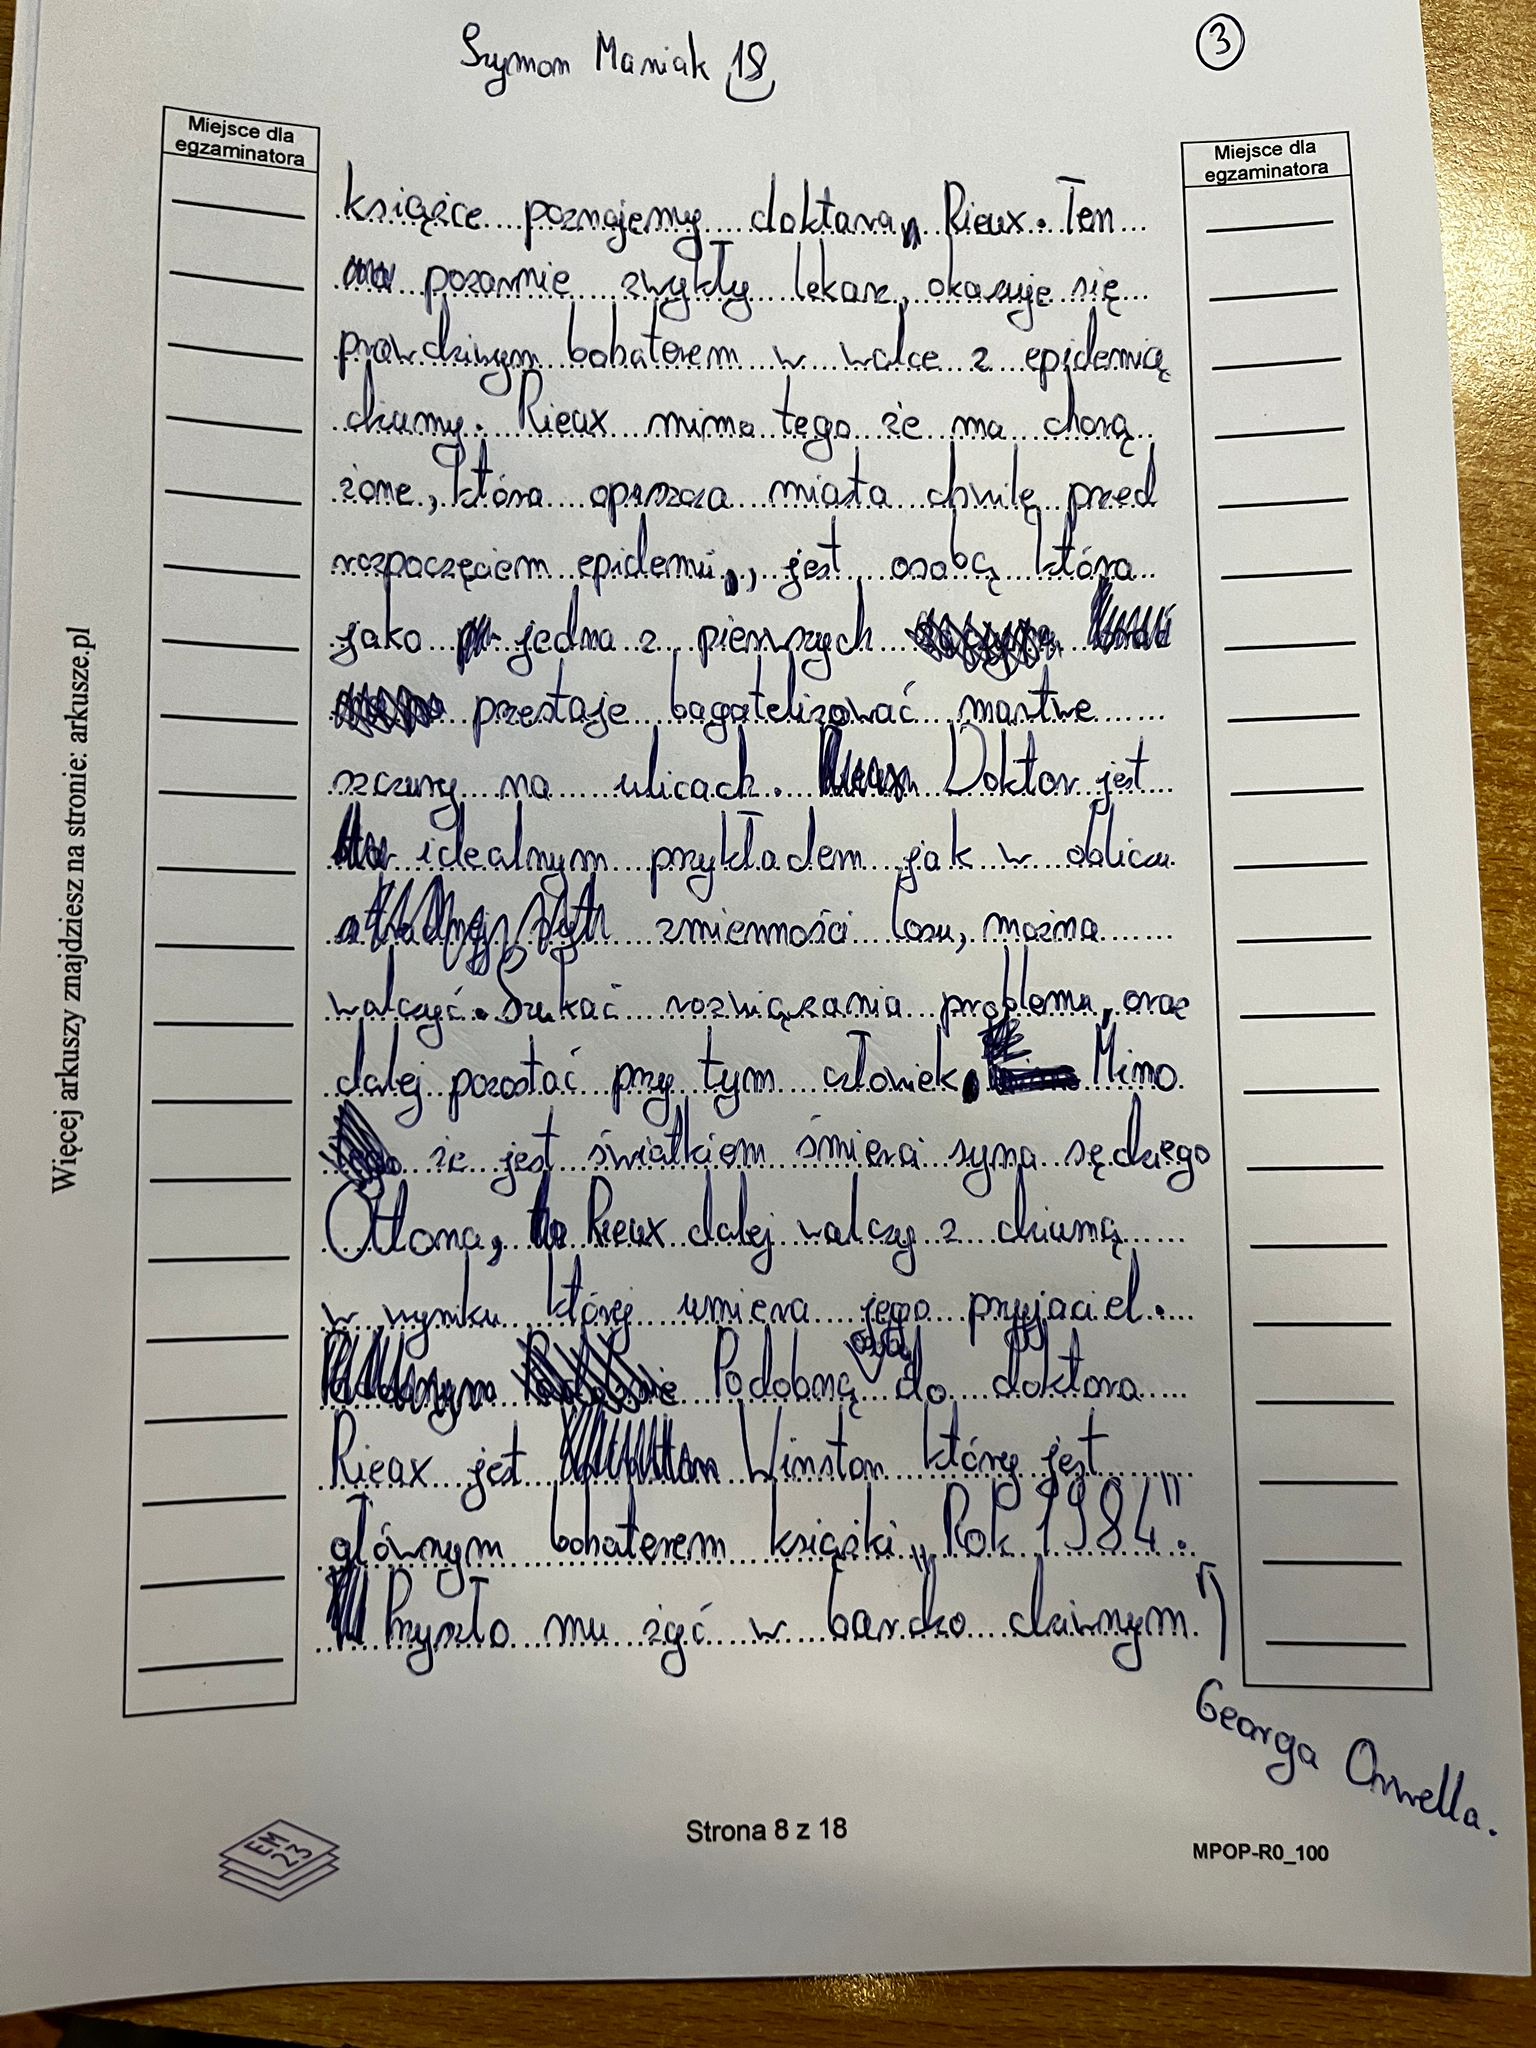 Szymon Maniak 18
3
Miejsce dla
egzaminatora
Miejsce dla
egzaminatora
książce poznajemy doktora Rieux. Ten
pozornie zwykły lekarz, okazuje się
prawdziwym bohaterem w walce z epidemią
dżumy. Rieux mimo tego że ma chorą
żone, która opuszcza miasta chwilę przed
rozpoczęciem epidemii, jest osobą która
jako jedna z pierwszych
przestaje bagatelizować martwe
szczury na ulicach. Doktor jest
idealnym przykładem jak w obliczu
zmienności losu, można
walczyć. Szukać rozwiązania problemu, oraz
dalej pozostać przy tym człowiek. Mimo
że jest świadkiem śmierci syna sędziego
Ottona, Rieux dalej walczy z dżumą
w wyniku której umiera jego przyjaciel.
osobą
Podobną do doktora
Rieax jest Winston który jest
głównym bohaterem książki „Rok 1984".
Przyszło mu żyć w bardzo dziwnym
Georga Orwella.
Więcej arkuszy znajdziesz na stronie: arkusze.pl
EM
23
Strona 8 z 18
MPOP-R0_100